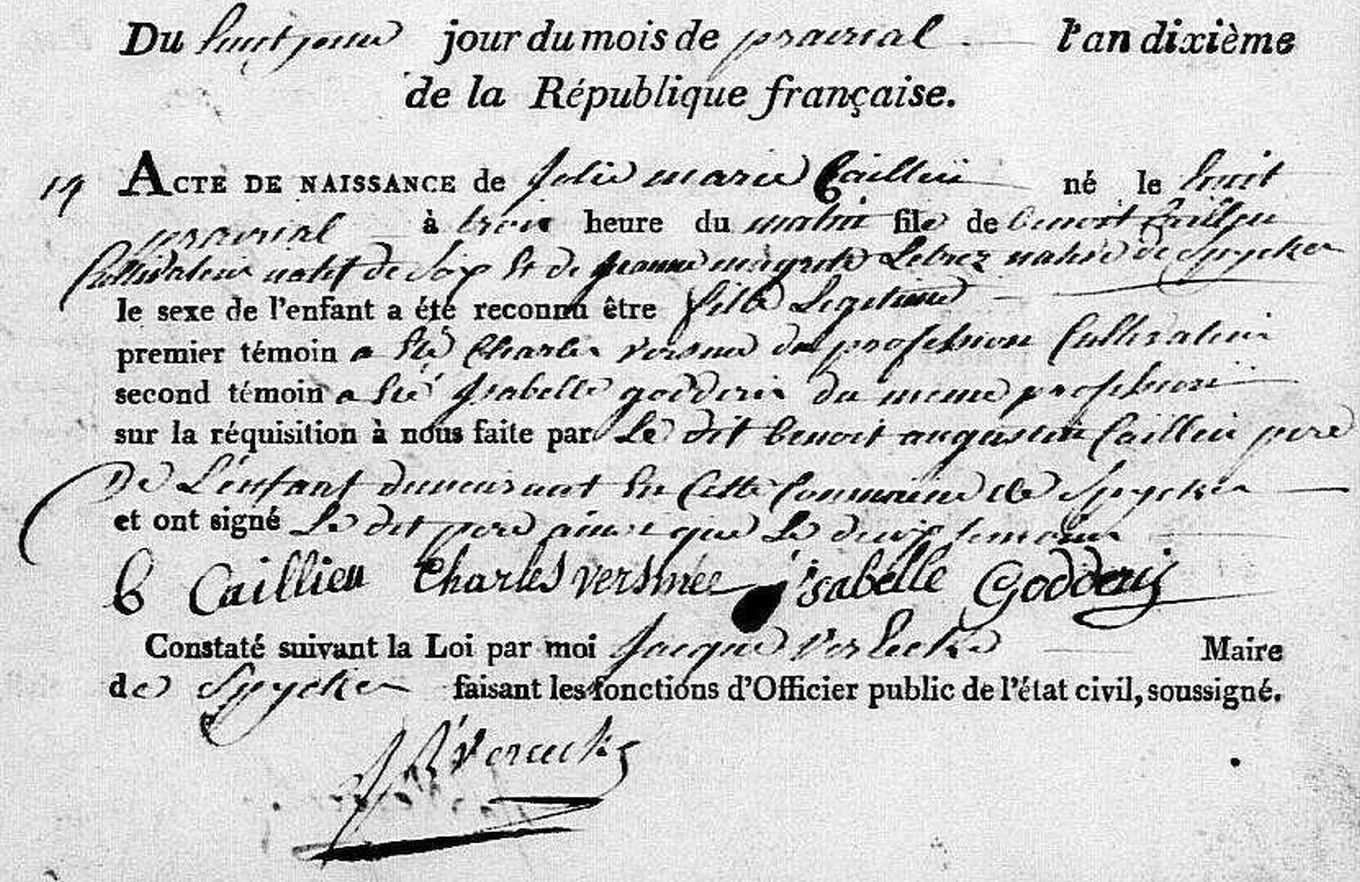 Du huit jour du mois de prairial l'an dixième
de la République française.
19 ACTE DE NAISSANCE de Julie marie Caillieu né le huit
prairial à trois heure du matin file de benoit Caillieu
Cultivateur natif de et de jeanne Lebrez native de Spycker
le sexe de l'enfant a été reconnu être fille Legitime
premier témoin a Eté Charles versmee du profession Cultivateur
second témoin a Eté Isabelle godderis du meme profession
sur la réquisition à nous faite par Le dit benoit augustin Caillieu pere
De L'enfant demeurant En Cette Commune de Spycker
et ont signé Le dit pere ainsi que Le deux temoins
B Caillieu Charles versmée isabelle Godderis
Constaté suivant la Loi par moi Jacque Maire
de Spycker faisant les fonctions d'Officier public de l'état civil, soussigné.